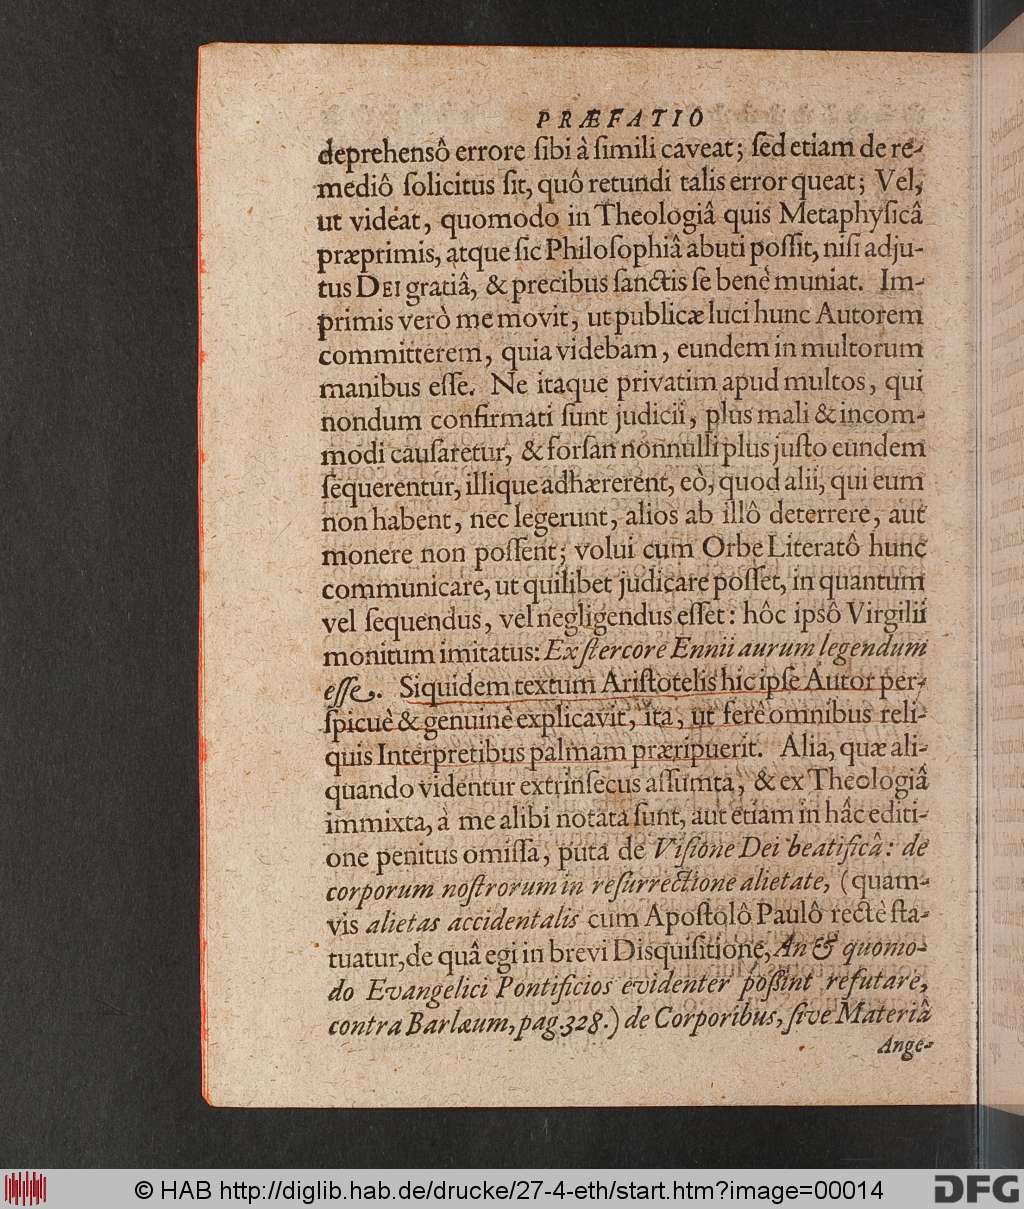 PRÆFATIO
deprehensô errore ſibi à ſimili caveat; ſed etiam de re-
mediô ſolicitus ſit, quô retundi talis error queat; Vel,
ut videat, quomodo in Theologiâ quis Metaphyſicâ
præprimis, atque ſic Philoſophiâ abuti poſſit, niſi adju-
tus DEI gratiâ, & precibus ſanctis ſe benè muniat. Im-
primis verò me movit, ut publicæ luci hunc Autorem
committerem, quia videbam, eundem in multorum
manibus eſſe. Ne itaque privatim apud multos, qui
nondum confirmati ſunt judicii, plus mali & incom-
modi cauſaretur, & forſan nonnulli plus juſto eundem
ſequerentur, illique adhærerent, eò, quod alii, qui eum
non habent, nec legerunt, alios ab illô deterrere, aut
monere non poſſent; volui cum Orbe Literatô hunc
communicare, ut quilibet judicare poſſet, in quantum
vel ſequendus, vel negligendus eſſet: hôc ipsô Virgilii
monitum imitatus: Ex ſtercore Ennii aurum legendum
eſſe. Siquidem textum Ariſtotelis hic ipſe Autor per-
ſpicuè & genuinè explicavit, ita, ut ferè omnibus reli-
quis Interpretibus palmam præripuerit. Alia, quæ ali-
quando videntur extrinſecus aſſumta, & ex Theologiâ
immixta, à me alibi notata ſunt, aut etiam in hâc editi-
one penitus omiſſa, puta de Viſione Dei beatificâ: de
corporum noſtrorum in reſurrectione alietate, (quam-
vis alietas accidentalis cum Apoſtolô Paulô rectè ſta-
tuatur, de quâ egi in brevi Disquiſitione, An & quomo-
do Evangelici Pontificios evidenter poſſint refutare,
contra Barlæum, pag. 328.) de Corporibus, ſive Materiâ
Ange-
© HAB http://diglib.hab.de/drucke/27-4-eth/start.htm?image=00014
DFG